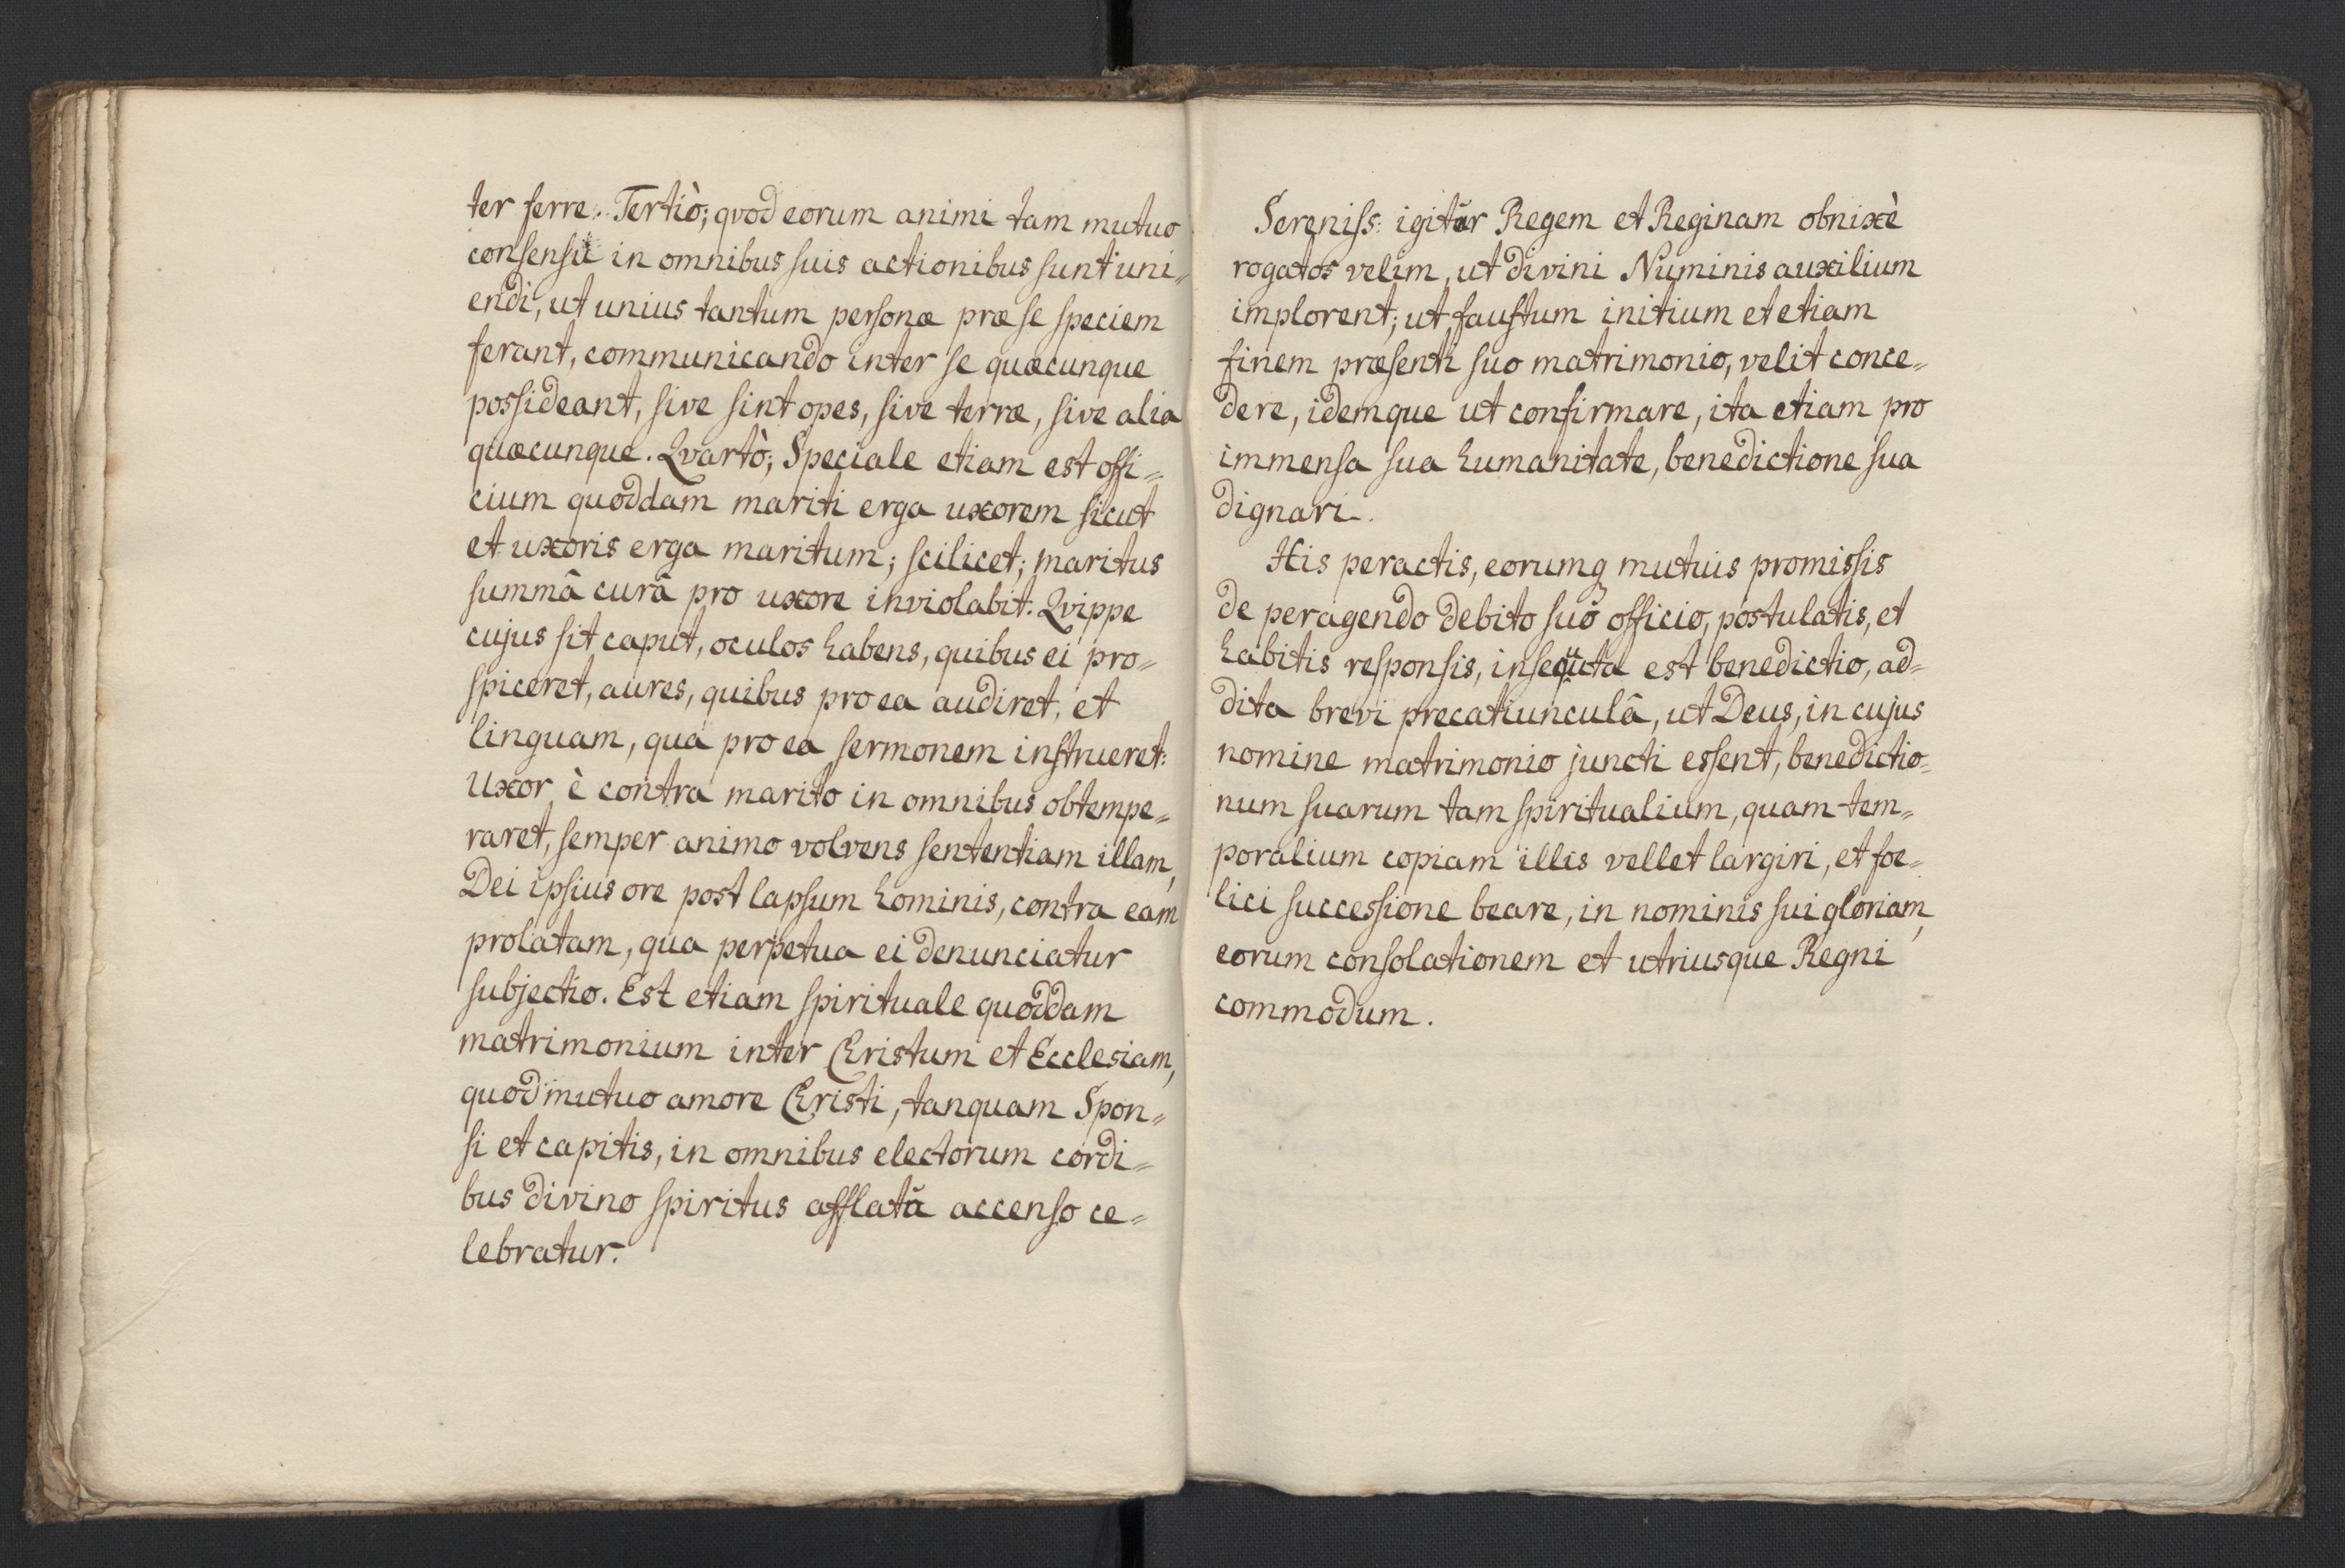 ter ferre. Tertiò; qvod eorum animi tam mutuo
consensu in omnibus suis actionibus sunt uni=
endi, ut unius tantum personæ præ se speciem
ferant, communicando inter se quæcunque
possideant, sive sint opes, sive terræ, sive alia
quæcunque. Qvartò; Speciale etiam est offi=
cium quoddam mariti erga uxorem sicut
et uxoris erga maritum; scilicet; maritus
summâ curâ pro uxore inviolabit. Qvippe
cujus sit caput, oculos habens, quibus ei pro=
spiceret, aures, quibus pro ea audiret, et
linguam, qua pro ea sermonem instrueret:
Uxor è contra marito in omnibus obtempe=
raret, semper animo volvens sententiam illam,
Dei ipsius ore post lapsum hominis, contra eam
prolatam, qua perpetua ei denunciatur
subjectio. Est etiam spirituale quoddam
matrimonium inter Christum et Ecclesiam,
quod mutuo amore Christi, tanquam Spon=
si et capitis, in omnibus electorum cordi=
bus divino spiritus afflatu accenso ce=
lebratur.
Sereniss: igitur Regem et Reginam obnixè
rogatos velim, ut divini Numinis auxilium
implorent; ut faustum initium et etiam
finem præsenti suo matrimonio, velit conce=
dere, idemque ut confirmare, ita etiam pro
immensa sua humanitate, benedictione sua
dignari.
His peractis, eorumq mutuis promissis
de peragendo debito suo officio, postulatis, et
habitis responsis, insequuta est benedictio, ad=
dita brevi precatiunculâ, ut Deus, in cujus
nomine matrimonio juncti essent, benedictio=
num suarum tam spiritualium, quam tem=
poralium copiam illis vellet largiri, et foe=
lici successione beare, in nominis sui gloriam,
eorum consolationem et utriusque Regni
commodum.